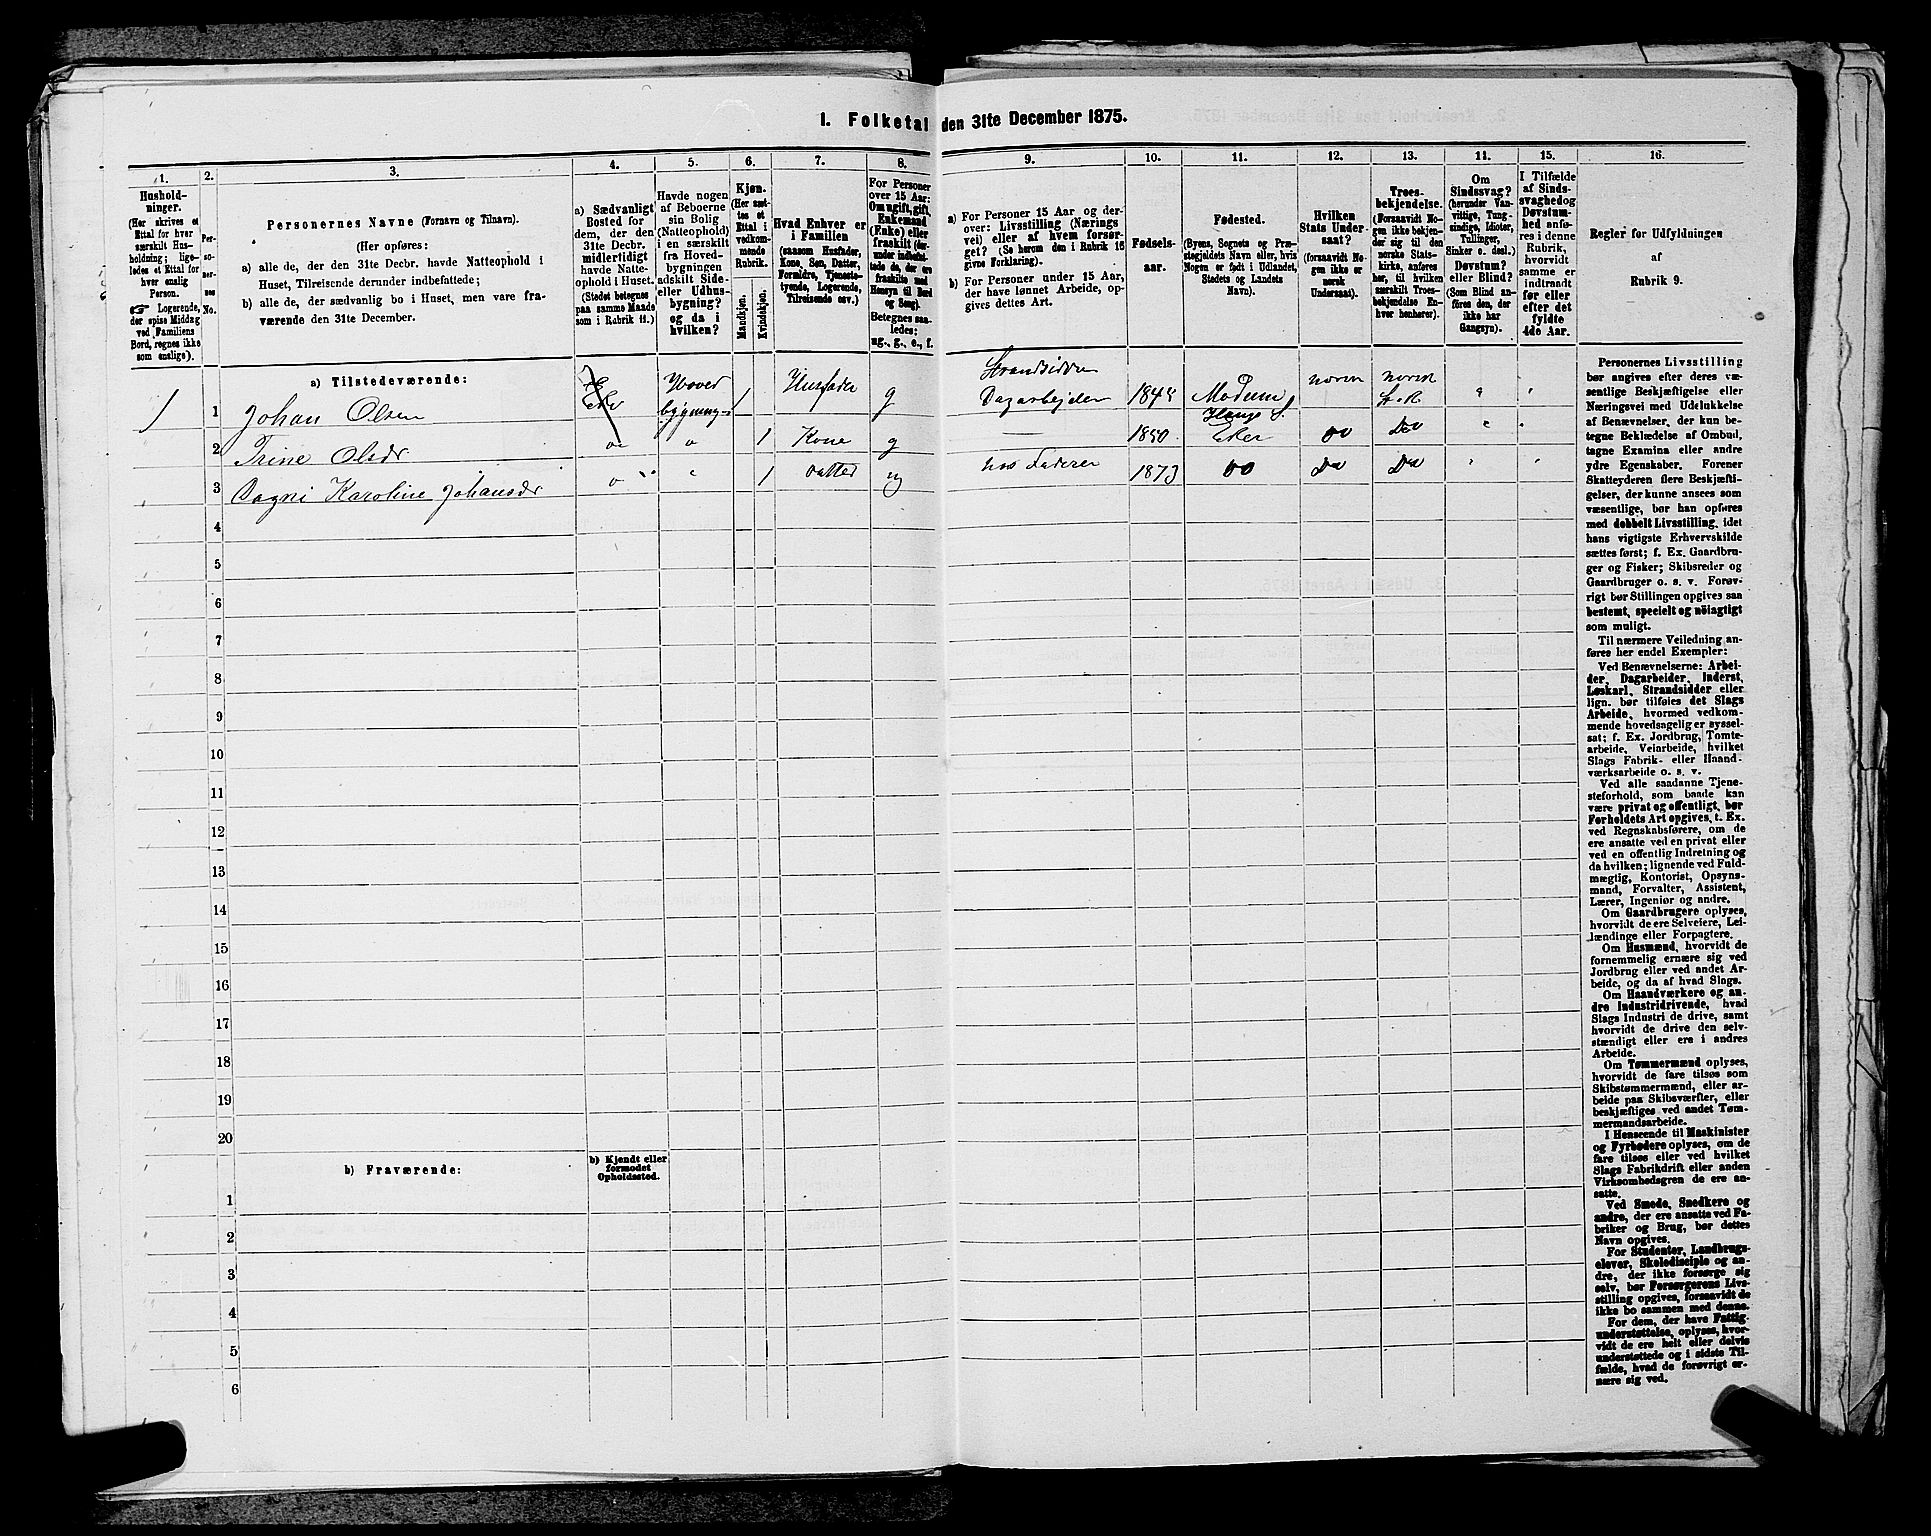 1. Folketal den 31te December 1875.
1.
Hushold-
ninger.
(Her skrives et
Ettal for hver
særskilt Hus-
holdning; lige-
ledes et Ettal for
hver enslig
Person.
☞ Logerende,
der spise Middag
ved Familiens
Bord, regnes ikke
som enslige).
2.
Per-
so-
ner-
nes
No.
3.
Personernes Navne (Fornavn og Tilnavn).
(Her opføres:
a) alle de, der den 31te Decbr. havde Natteophold i
Huset, Tilreisende derunder indbefattede;
b) alle de, der sædvanlig bo i Huset, men vare fra-
værende den 31te December.
4.
a) Sædvanligt
Bosted for
dem, der den
31te Decbr.
midlertidigt
havde Natte-
ophold i Huset.
(Stedet betegnes
paa samme Maade
som i Rubrik 11.)
5.
Havde nogen
af Beboerne
sin Bolig
(Natteophold)
i en særskilt
fra Hoved-
bygningen
adskilt Side-
eller Udhus-
bygning?
og da i
hvilken?
6.
Kjøn.
(Her sæt-
tes et
Ettal i
vedkom-
mende
Rubrik.
Mandkjøn.
Kvindekjøn.
7.
Hvad Enhver er
i Familien
(saasom Husfader,
Kone, Søn, Datter,
Forældre, Tjeneste-
tyende, Logerende,
Tilreisende osv.)
8.
For Personer
over 15 Aar:
Om ugift, gift,
Enkemand
(Enke) eller
fraskilt (der-
under indbefat-
tede de, der ere
fraskilte med
Hensyn til Bord
og Seng).
Betegnes saa-
ledes:
ug., g., e., f.
9.
a) For Personer 15 Aar og der-
over: Livsstilling (Nærings
vei) eller af hvem forsør-
get? (Se herom den i Rubrik 16
givne Forklaring).
b) For Personer under 15 Aar,
der have lønnet Arbeide, op-
gives dettes Art.
10.
Fødsels-
aar.
11.
Fødested.
(Byens, Sognets og Præ-
stegjeldets Navn eller, hvis
Nogen er født i Udlandet,
Stedets og Landets
Navn).
12.
Hvilken
Stats Under-
saat?
(forsaavidt No-
gen ikke er
norsk
Undersaat).
13.
Troes-
bekjendelse.
(Forsaavidt No-
gen ikke bekjen-
der sig til den
norske Stats-
kirke, anføres
her, til hvilken
særskilt Troes-
bekjendelse En-
hver henhører).
11.
Om
Sindssvag?
(herunder Van-
vittige, Tung-
sindige, Idioter,
Tullinger,
Sinker o. desl.)
Døvstum?
eller Blind?
(Som Blind an-
føres den, der
ikke har
Gangsyn).
15.
I Tilfælde
af Sinds-
svaghed og
Døvstum-
hed anfø-
res i denne
Rubrik,
hvorvidt
samme er
indtraadt
før eller
efter det
fyldte
4de Aar.
16.
Regler for Udfyldningen
af
Rubrik 9.
a) Tilstedeværende:
1 1 Johan Olsen Eker Hoved bygning 1 Husfader g Strandsidder Dagarbejder Modum norsk norsk
2 Trine Olsdr 1 Kone g 1850 Haugs S. Eker Do Do
3 Dagni Karoline Johansdr 1 Datter ug hos Faderen 1873 Do Do Do
4
5
6
7
8
9
10
11
12
13
14
15
16
17
18
19
20
b) Fraværende:
b) Kjendt eller
formodet
Opholdssted.
1
2
3
4
5
6
Personernes Livsstilling
bør angives efter deres væ-
sentlige Beskjæftigelse eller
Næringsvei med Udelukkelse
af Benævnelser, der kun be-
tegne Beklædelse af Ombud,
tagne Examina eller andre
ydre Egenskaber. Forener
Skatteyderen flere Beskjæfti-
gelser, der kunne ansees som
væsentlige, bør han opføres
med dobbelt Livsstilling, idet
hans vigtigste Erhvervskilde
sættes først; f. Ex. Gaardbru-
ger og Fisker; Skibsreder og
Gaardbruger o. s. v. Forøv-
rigt bør Stillingen opgives saa
bestemt, specielt og nöiagtigt
som muligt.
Til nærmere Veiledning an-
føres her endel Exempler:
Ved Benævnelserne: Arbei-
der, Dagarbeider, Inderst,
Løskarl, Strandsidder eller
lign. bør tilføies det Slags
Arbeide, hvormed vedkom-
mende hovedsagelig er syssel-
sat; f. Ex. Jordbrug, Tomte-
arbeide, Veiarbeide, hvilket
Slags Fabrik- eller Haand-
værksarbeide o. s. v.
Ved alle saadanne Tjene-
steforhold, som baade kan
være privat og offentligt, bør
Forholdets Art opgives, t. Ex.
ved Regnskabsførere, om de
ere ansatte ved en privat eller
ved en offentlig Indretning og
da hvilken; lignende ved Fuld-
mægtig, Kontorist, Opsyns-
mand, Forvalter, Assistent,
Lærer, Ingeniør og andre.
Om Gaardbrugere oplyses,
hvorvidt de ere Selveiere, Lei-
lændinge eller Forpagtere.
Om Husmænd, hvorvidt de
fornemmelig ernære sig ved
Jordbrug eller ved andet Ar-
beide, og da af hvad Slags.
Om Haandværkere og an-
dre Industridrivende, hvad
Slags Industri de drive, samt
hvorvidt de drive den selv-
stændigt eller ere i andres
Arbeide.
Om Tømmermænd oplyses,
hvorvidt de fare tilsøs som
Skibstømmermænd, eller ar-
beide paa Skibsværfter, eller
beskjæftiges ved andet Tøm-
mermandsarbeide.
I Henseende til Maskinister
og Fyrbødere oplyses, om de
fare tilsøs eller ved hvilket
Slags Fabrikdrift eller anden
Virksomhedsgren de ere an-
satte.
Ved Smede, Snedkere og
andre, der ere ansatte ved Fa-
briker og Brug, bør dettes
Navn opgives.
For Studenter, Landbrugs-
elever, Skoledisciple og an-
dre, der ikke forsørge sig
selv, bør Forsørgerens Livs-
stilling opgives, forsaavidt de
ikke bo sammen med denne.
For dem, der have Fattig-
understøttelse, oplyses, hvor-
vidt de ere helt eller delvis
understøttede og i sidste Til-
fælde, hvad de forøvrigt er-
nære sig ved.